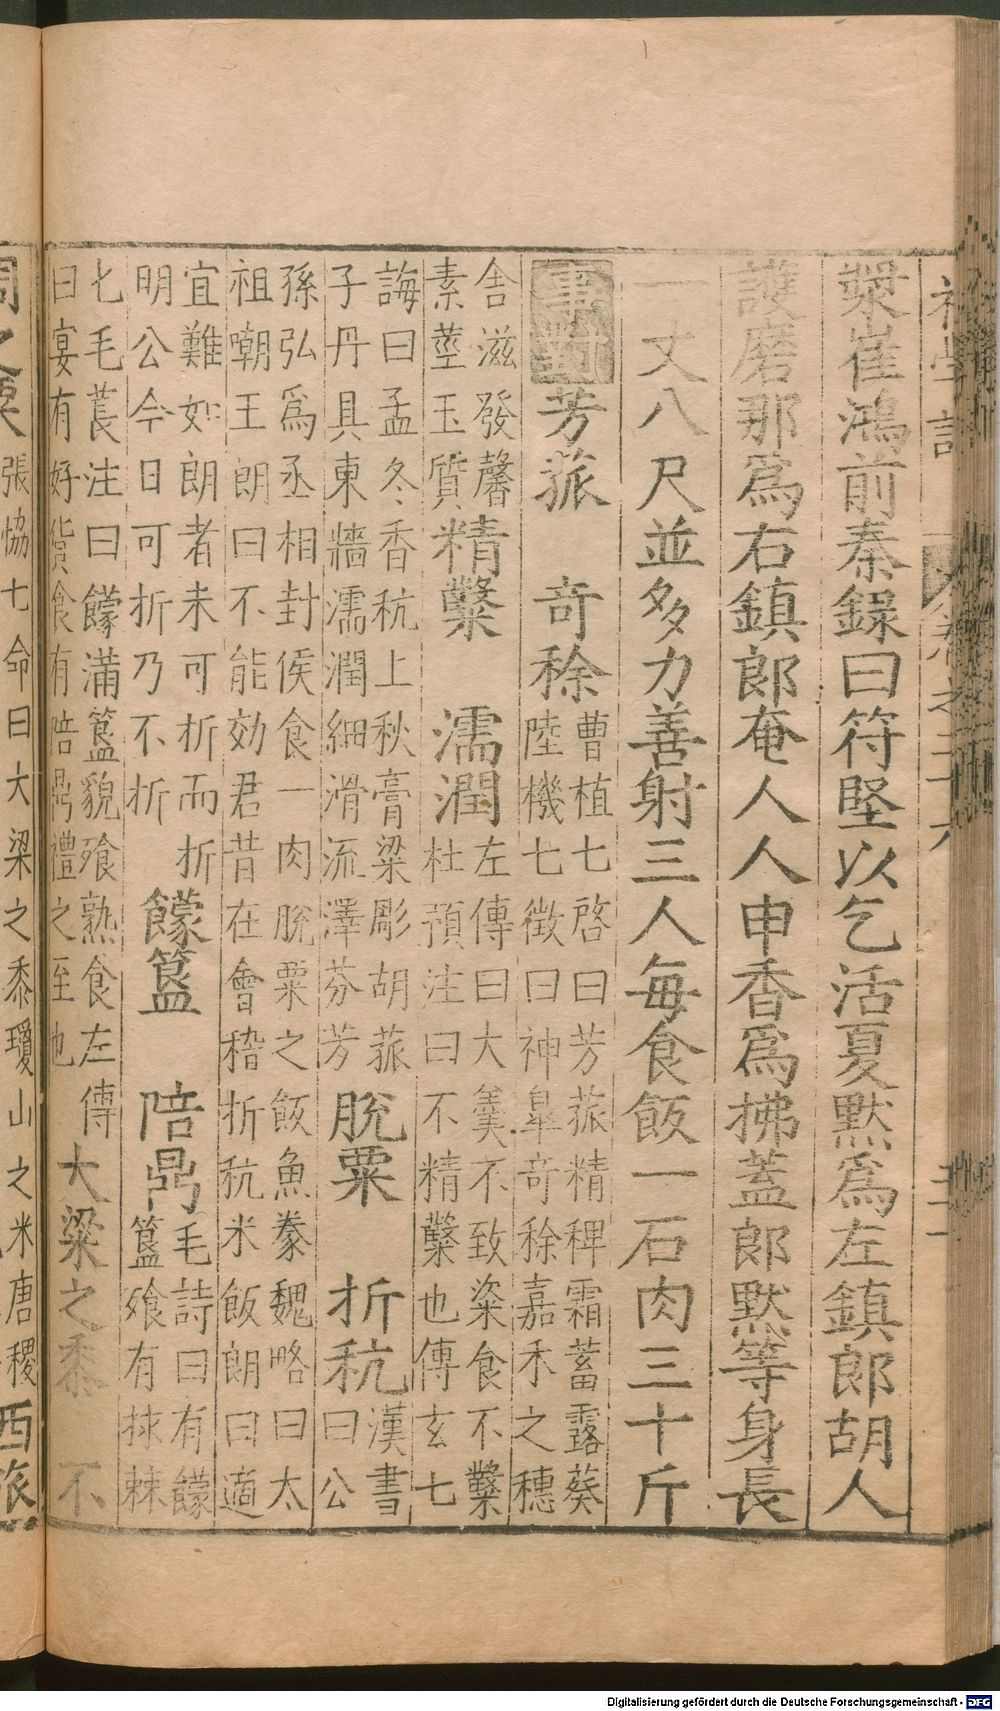 粲崔鴻前秦錄曰符堅以乞活夏默爲左鎮郎胡人
護磨那爲右鎮郎奄人人申香爲拂蓋郎默等身長
一丈八尺並多力善射三人每食飯一石肉三十斤
事對芳菰 奇稌曹植七啓曰芳菰精稗霜蓄露葵
陸機七徵曰神皐奇稌嘉禾之穗
舍滋發馨
素蕋玉質精糳 濡潤左傳曰大羹不致粢食不糳
杜預注曰不精糳也傅玄七
誨曰孟冬香秔上秋膏粱彫胡菰
子丹具東牆濡潤細滑流澤芬芳脫粟 折秔漢書
曰公
孫弘爲丞相封侯食一肉脫粟之飯魚豢魏略曰太
祖嘲王朗曰不能効君昔在會稽折秔米飯朗曰適
宜難如朗者未可折而折
明公今日可折乃不折饛簋 陪鼎毛詩曰有饛
簋飱有捄棘
匕毛萇注曰饛滿簋貌飱熟食左傳
曰宴有好貨食有陪鼎禮之至也大粱之黍 不
周之粟張協七命曰大梁之黍瓊山之米唐稷西旅
Digitalisierung gefördert durch die Deutsche Forschungsgemeinschaft - DFG